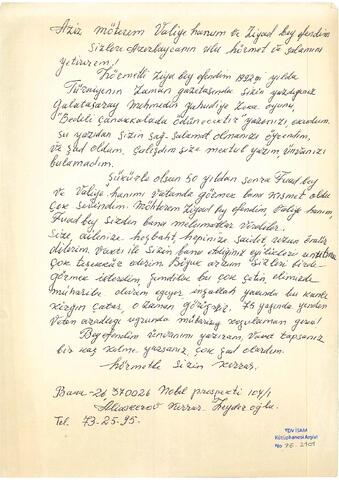 Aziz möhterem Valiye hanım ve Ziyad bey efendim
Sizlere Azerbaycanın ulu hörmet ve salamını
yetirirem!
Hörmetli Ziya bey efendim 1992çi yılda
Türkiyenin Zaman gazetesinde sizin yazdığınız
Galatasaray
"Bedeli Çanakkalada ödünecektir" yazınızı okudum.
su yazıdan sizin sağ-salamat olmanızı öyrendim,
ve şad oldum. Çalışdım size mektub yazım, ünvanızı
bulamadım.
Şükürle olsun 50 yıldan sonra Fuad bey
ve Valiye hanımı vatanda görmek bana kısmet oldu
çok sevindim. Möhterem Ziyad bey efendim, Valiye hanım,
Fuad bey sizden bana melumatlar verdiler.
Size ailenize hoşbaht, hepinize saadet, uzun ömür
dilerim. Vaktı ile sizin bana etdiğiniz eyilikleri unutmam
çok teşekkür ederim Böyük arzum Sizleri birde
görmek isterdim, Şimdilik bu çok çetin, elimizde
muharibe davam ediyor inşallah yakında bu kanlı
kırgın çatar, o zaman görüşürüz. 75 yaşında yeniden
Veten azadlığı uğrunda mübarize
Bey efendim ünvanımı yazıram, Vavıt tapsanız
bir kaç kelme yazsanız, çok şad olardım.
hörmetle sizin Xırrar.
Bakı-26 370026 Nobel prospekti 104/1
Xırrar Heyder oğlu
Tel. 73-25-95.
TDV İSAM
Kütüphanesi Arşivi
No 76. 2101